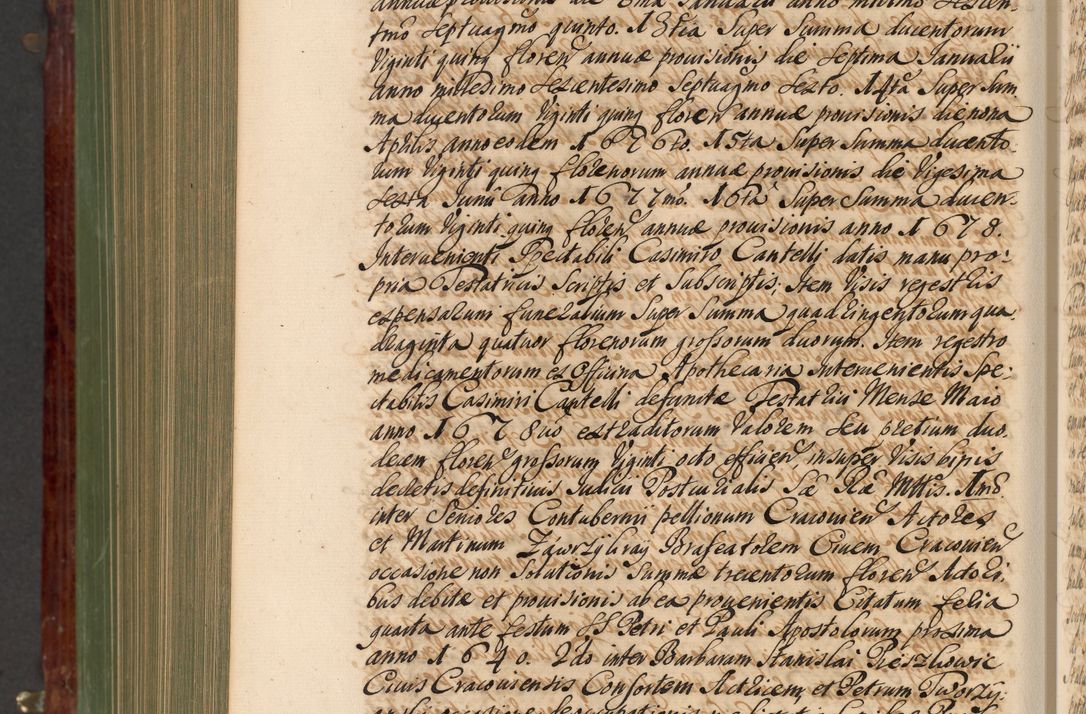 annuæ provisionis die 8va Januarii anno millmo sexcen-
tmo septuagmo quinto. 13tia super summa ducentorum
Viginti quinq floren annuæ provisionis die septima Januarii
anno millesimo sexcentesimo septuagmo sexto. 14ta super sum
ma ducentorum Viginti quinq floren annuæ provisionis die nona
Aprilis anno eodem 1676to. 15ta super summa ducento
rum Viginti quinq florenorum annuæ provisionis die Vigesima
sexta Junii anno 1677mo. 16ta super summa ducen-
torum Viginti quinq floren annuæ provisionis anno 1678.
Intervenienti Spectabili Casimiro Cantelli datis manu pro:
pria Testatricis scriptis et subscriptis; Item Visis regestris
expensarum funeralium super summa quadringentorum qua
draginta quatuor florenorum grossorum duorum. Item regestro
medicamentorum ex officina Apothecaria intervenientis Spe:
ctabilis Casimiri Cantelli defunctæ Testatrici Mense Maio
anno 1678vo extraditorum Valorem seu pretium duo.
decem floren grossorum Viginti octo efficien, insuper Visis binis
decretis definitivis Judicii Postcurialis Sæ Ræ Mttis. Imo
inter Seniores Contubernii pellionum Cracovien Actores
et Martinum Zawrzykray Braseatorem Civem Cracovien
occasione non solutionis summæ trecentorum floren Actori.
bus debitæ et provisionis ab ea provenientis Citatum feria
quarta ante festum SS Petri et Pauli Apostolorum proxima
anno 1640. 2do inter Barbaram Stanislai Preszkowic
Civis Cracoviensis Consortem Actricem, et Petrum Tworzy: